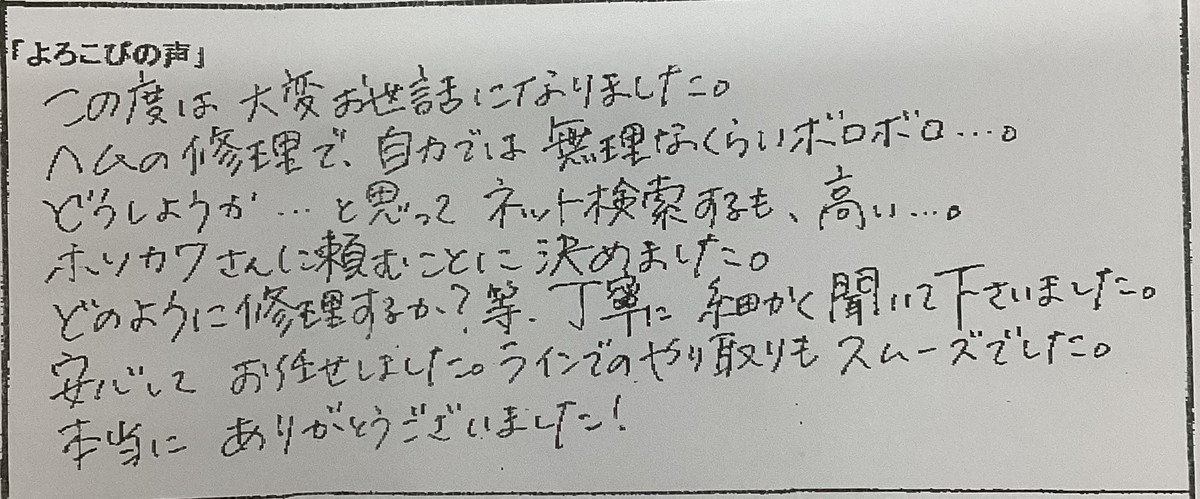 「よろこびの声」
この度は大変お世話になりました。
ハムの修理で、自力では無理なくらいボロボロ…。
どうしようか…と思ってネット検索するも、高い…。
ホソカワさんに頼むことに決めました。
どのように修理するか?等、丁寧に細かく聞いて下さいました。
安心してお任せしました。ラインでのやり取りもスムーズでした。
本当にありがとうございました!